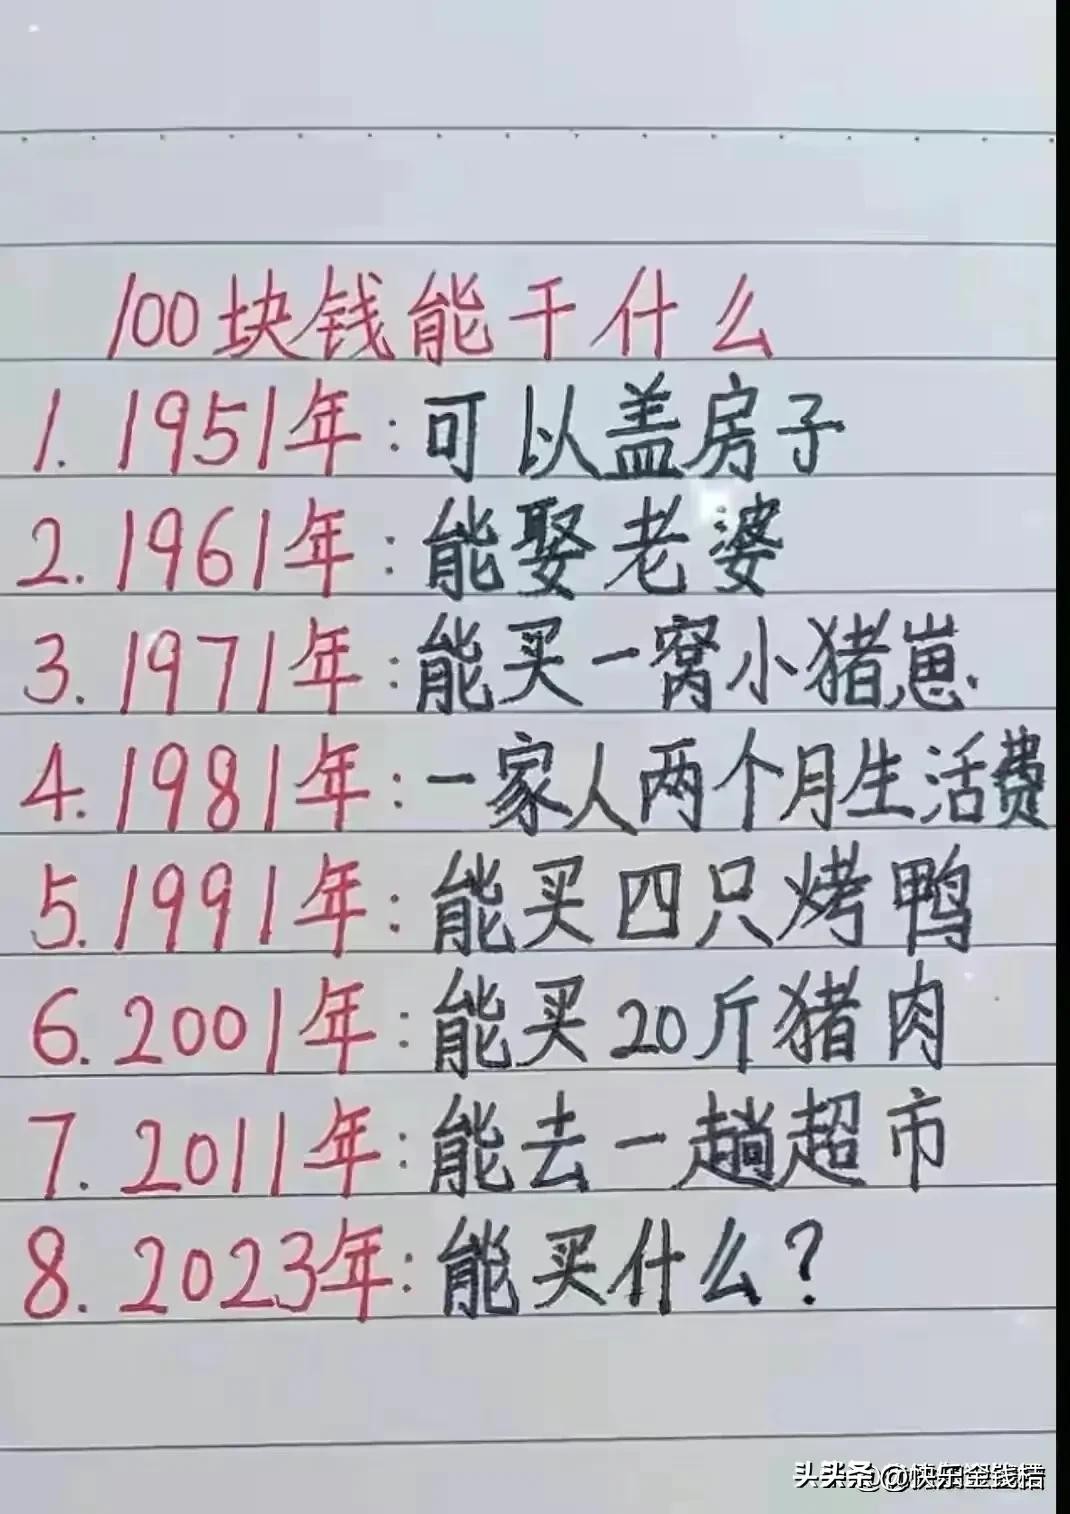 100块钱能干什么
1. 1951年:可以盖房子
2. 1961年:能娶老婆
3. 1971年:能买一窝小猪崽.
4. 1981年:一家人两个月生活费
5. 1991年:能买四只烤鸭
6. 2001年:能买20斤猪肉
7. 2011年:能去一趟超市
8. 2023年:能买什么?
头条@快乐金钱桔